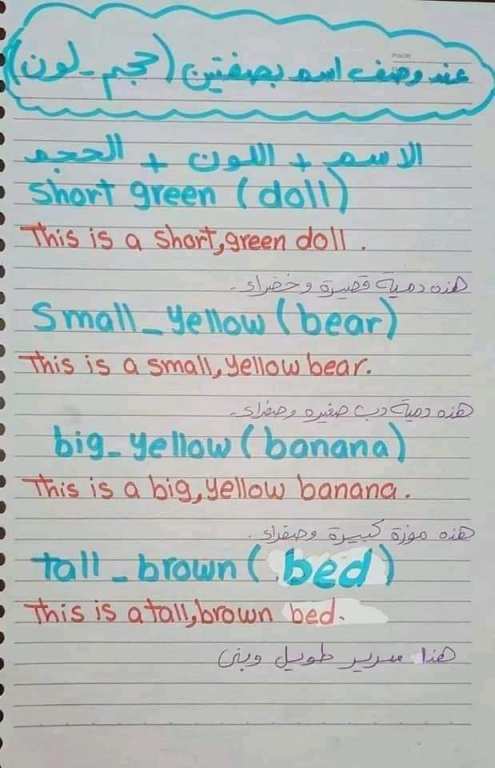 عند وصف اسم بصفتين (حجم - لون)
الاسم + اللون + الحجم
short green (doll)
This is a short, green doll.
هذه دمية قصيرة وخضراء.
Small_yellow (bear)
This is a small, yellow bear.
هذه دمية دب صغيره وصفراء.
big_yellow (banana)
This is a big, yellow banana.
هذه موزة كبيرة وصفراء.
tall_brown (bed)
This is a tall, brown bed.
هذا سرير طويل وبنى